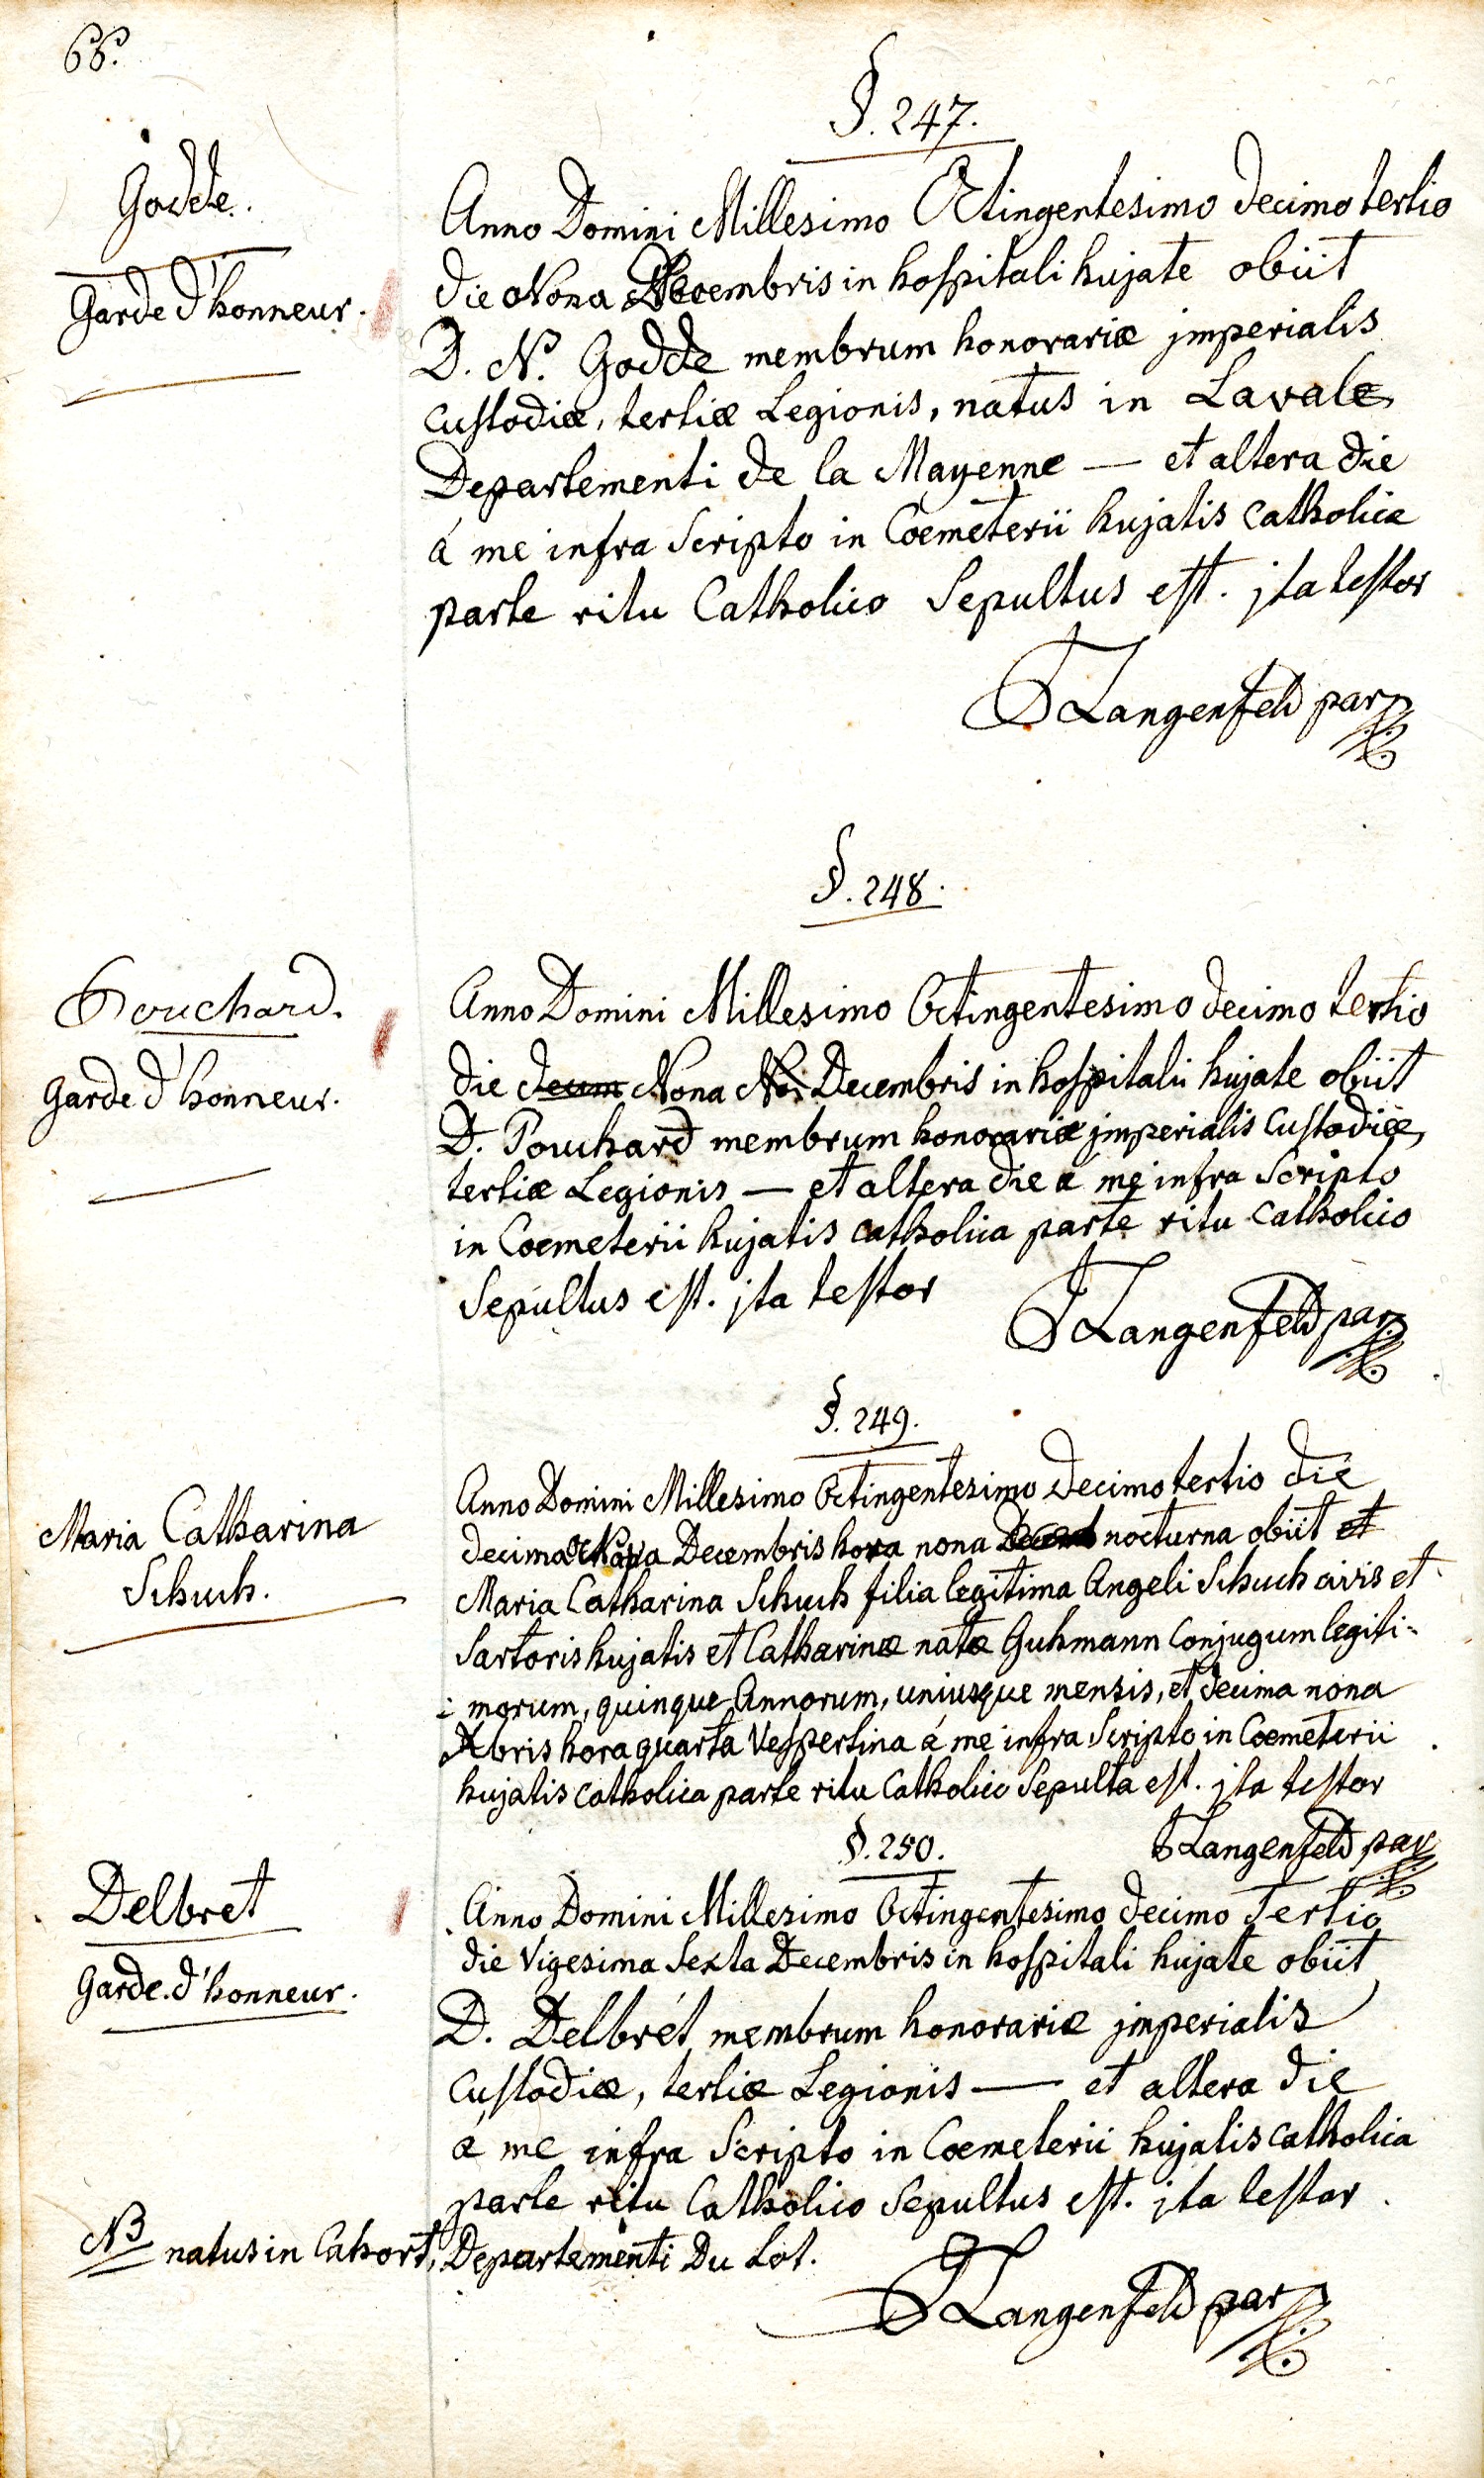 66.
§. 247.
Godde.
Garde d'honneur.
Anno Domini Millesimo Octingentesimo decimo tertio
die Nona Decembris in hospitali hujate obiit
D. N. Godde membrum honorariæ jmperialis
custodiæ, tertiæ Legionis, natus in Lavale
Departementi de la Mayenne — et altera die
á me infra Scripto in Coemeterii hujatis catholica
parte ritu Catholico Sepultus est. jta testor
Langenfeld par
§. 248.
Pouchard.
Garde d'honneur.
Anno Domini Millesimo Octingentesimo decimo tertio
die decim Nona Decembris in hospitali hujate obiit
D. Pouchard membrum honorariæ jmperialis Custodiæ,
tertiæ Legionis — et altera die a me infra Scripto
in Coemeterii hujatis catholica parte ritu Catholico
Sepultus est. jta testor
Langenfeld par
§. 249.
Maria Catharina
Schuch.
Anno Domini Millesimo Octingentesimo decimo tertio die
decima Decembris hora nona nocturna obiit et
Maria Catharina Schuch filia legitima Angeli Schuch civis et
Sartoris hujatis et Catharinæ natæ Guhmann Conjugum legiti-
morum, quinque Annorum, uniusque mensis, et decima nona
Xbris hora quarta Vespertina á me infra Scripto in Coemeterii
hujatis catholica parte ritu Catholico Sepulta est. jta testor
Langenfeld par
§. 250.
Delbret
Garde d'honneur.
Anno Domini Millesimo Octingentesimo decimo Tertio
die Vigesima Sexta Decembris in hospitali hujate obiit
D. Delbrét membrum honorariæ jmperialis
Custodiæ, tertiæ Legionis — et altera die
á me infra Scripto in Coemeterii hujatis catholica
parte ritu Catholico Sepultus est. jta testor
NB natus in Cahort, Departementi Du Lot.
Langenfeld par